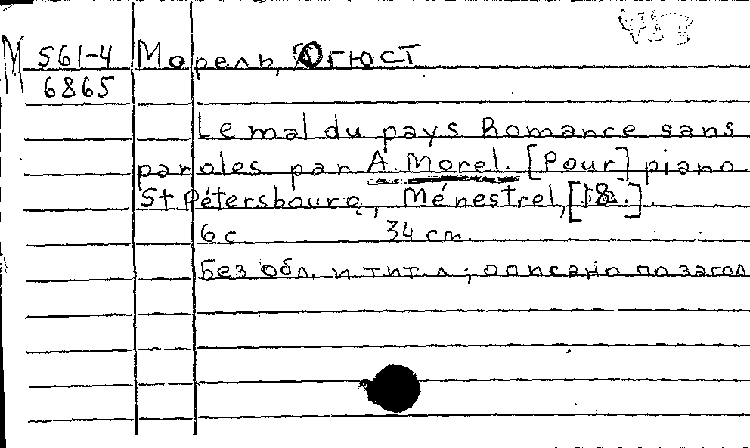 М 561-4 Морель, Огюст
6865
Le mal du pays Romance sans
paroles par A. Morel. [Pour] piano
St Pétersbourg, Ménestrel, [18 .].
6 с 34 cm
Без обл. и тит. л; описано по загол